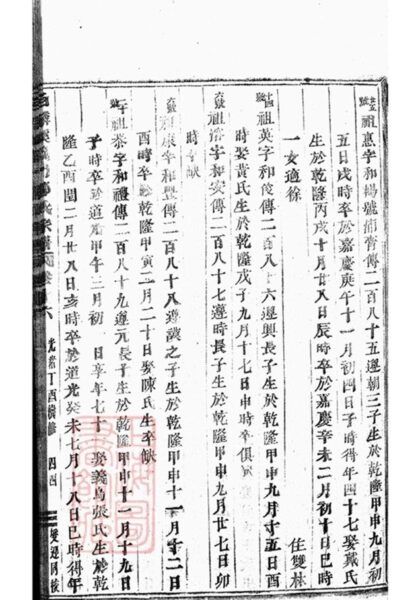 祖惠字和暘號浦齊傳二百八十五遵朝三子生於乾隆甲申九月初
五日戌時卒於嘉慶庚午十一月初四日子時得年四十七娶戴氏
生於乾隆丙戌十月廿八日辰時卒於嘉慶辛未二月初十日巳時
一女適徐
祖英字和俊傳二百八十六遵興長子生於乾隆甲申九月十五日酉
時娶黃氏生於乾隆戊子九月十七日申時卒俱 住雙林
祖 字和安傳二百八十七遵時長子生於乾隆甲申九月廿七日卯
時卒缺
祖康字和豐傳二百八十八遵 之子生於乾隆甲申十一月十二日
酉時卒於乾隆甲寅二月二十日娶陳氏生卒缺
祖泰字和禮傳二百八十九遵元長子生於乾隆甲申十一月十九日
子時卒於道光甲午三月初 日享年七十 娶義烏張氏生於乾
隆乙酉閏二月廿八日亥時卒於道光癸未七月十八日巳時得年
光緒丁酉續修 四四